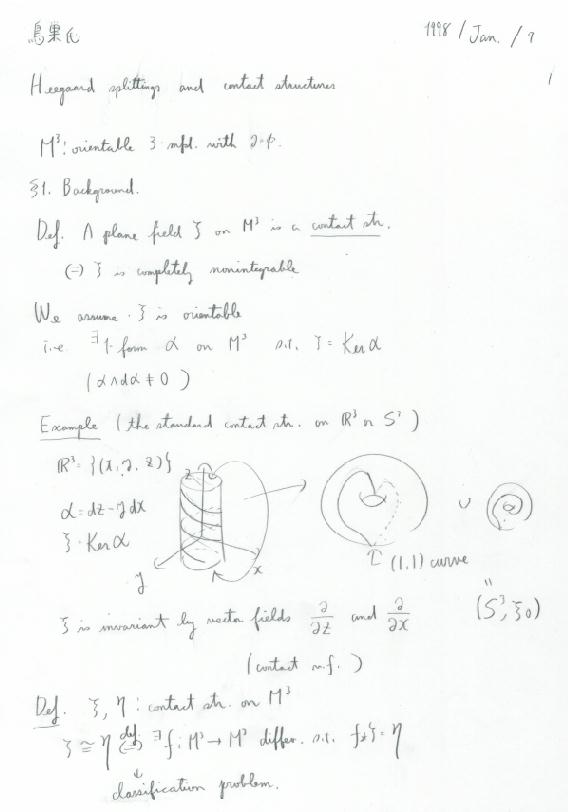 鳥巣氏
1998 / Jan. / 9
1
Heegaard splittings and contact structures
M³: orientable 3 mfd. with ∂=φ.
§1. Background.
Def. A plane field ξ on M³ is a contact str.
(⇔) ξ is completely nonintegrable
We assume ξ is orientable
i.e. ∃1-form α on M³ s.t. ξ = Ker α
(α∧dα ≠ 0)
Example (the standard contact str. on ℝ³ or S³)
ℝ³ = {(x, y, z)}
α = dz - ydx
ξ = Ker α
z
y
x
∪
(1,1) curve
"
(S³, ξ₀)
ξ is invariant by vector fields ∂/∂z and ∂/∂x
(contact v.f.)
Def. ξ, η : contact str. on M³
ξ ≅ η def. (⇔) ∃f : M³ → M³ diffeo. s.t. f∗ξ = η
↓
classification problem.